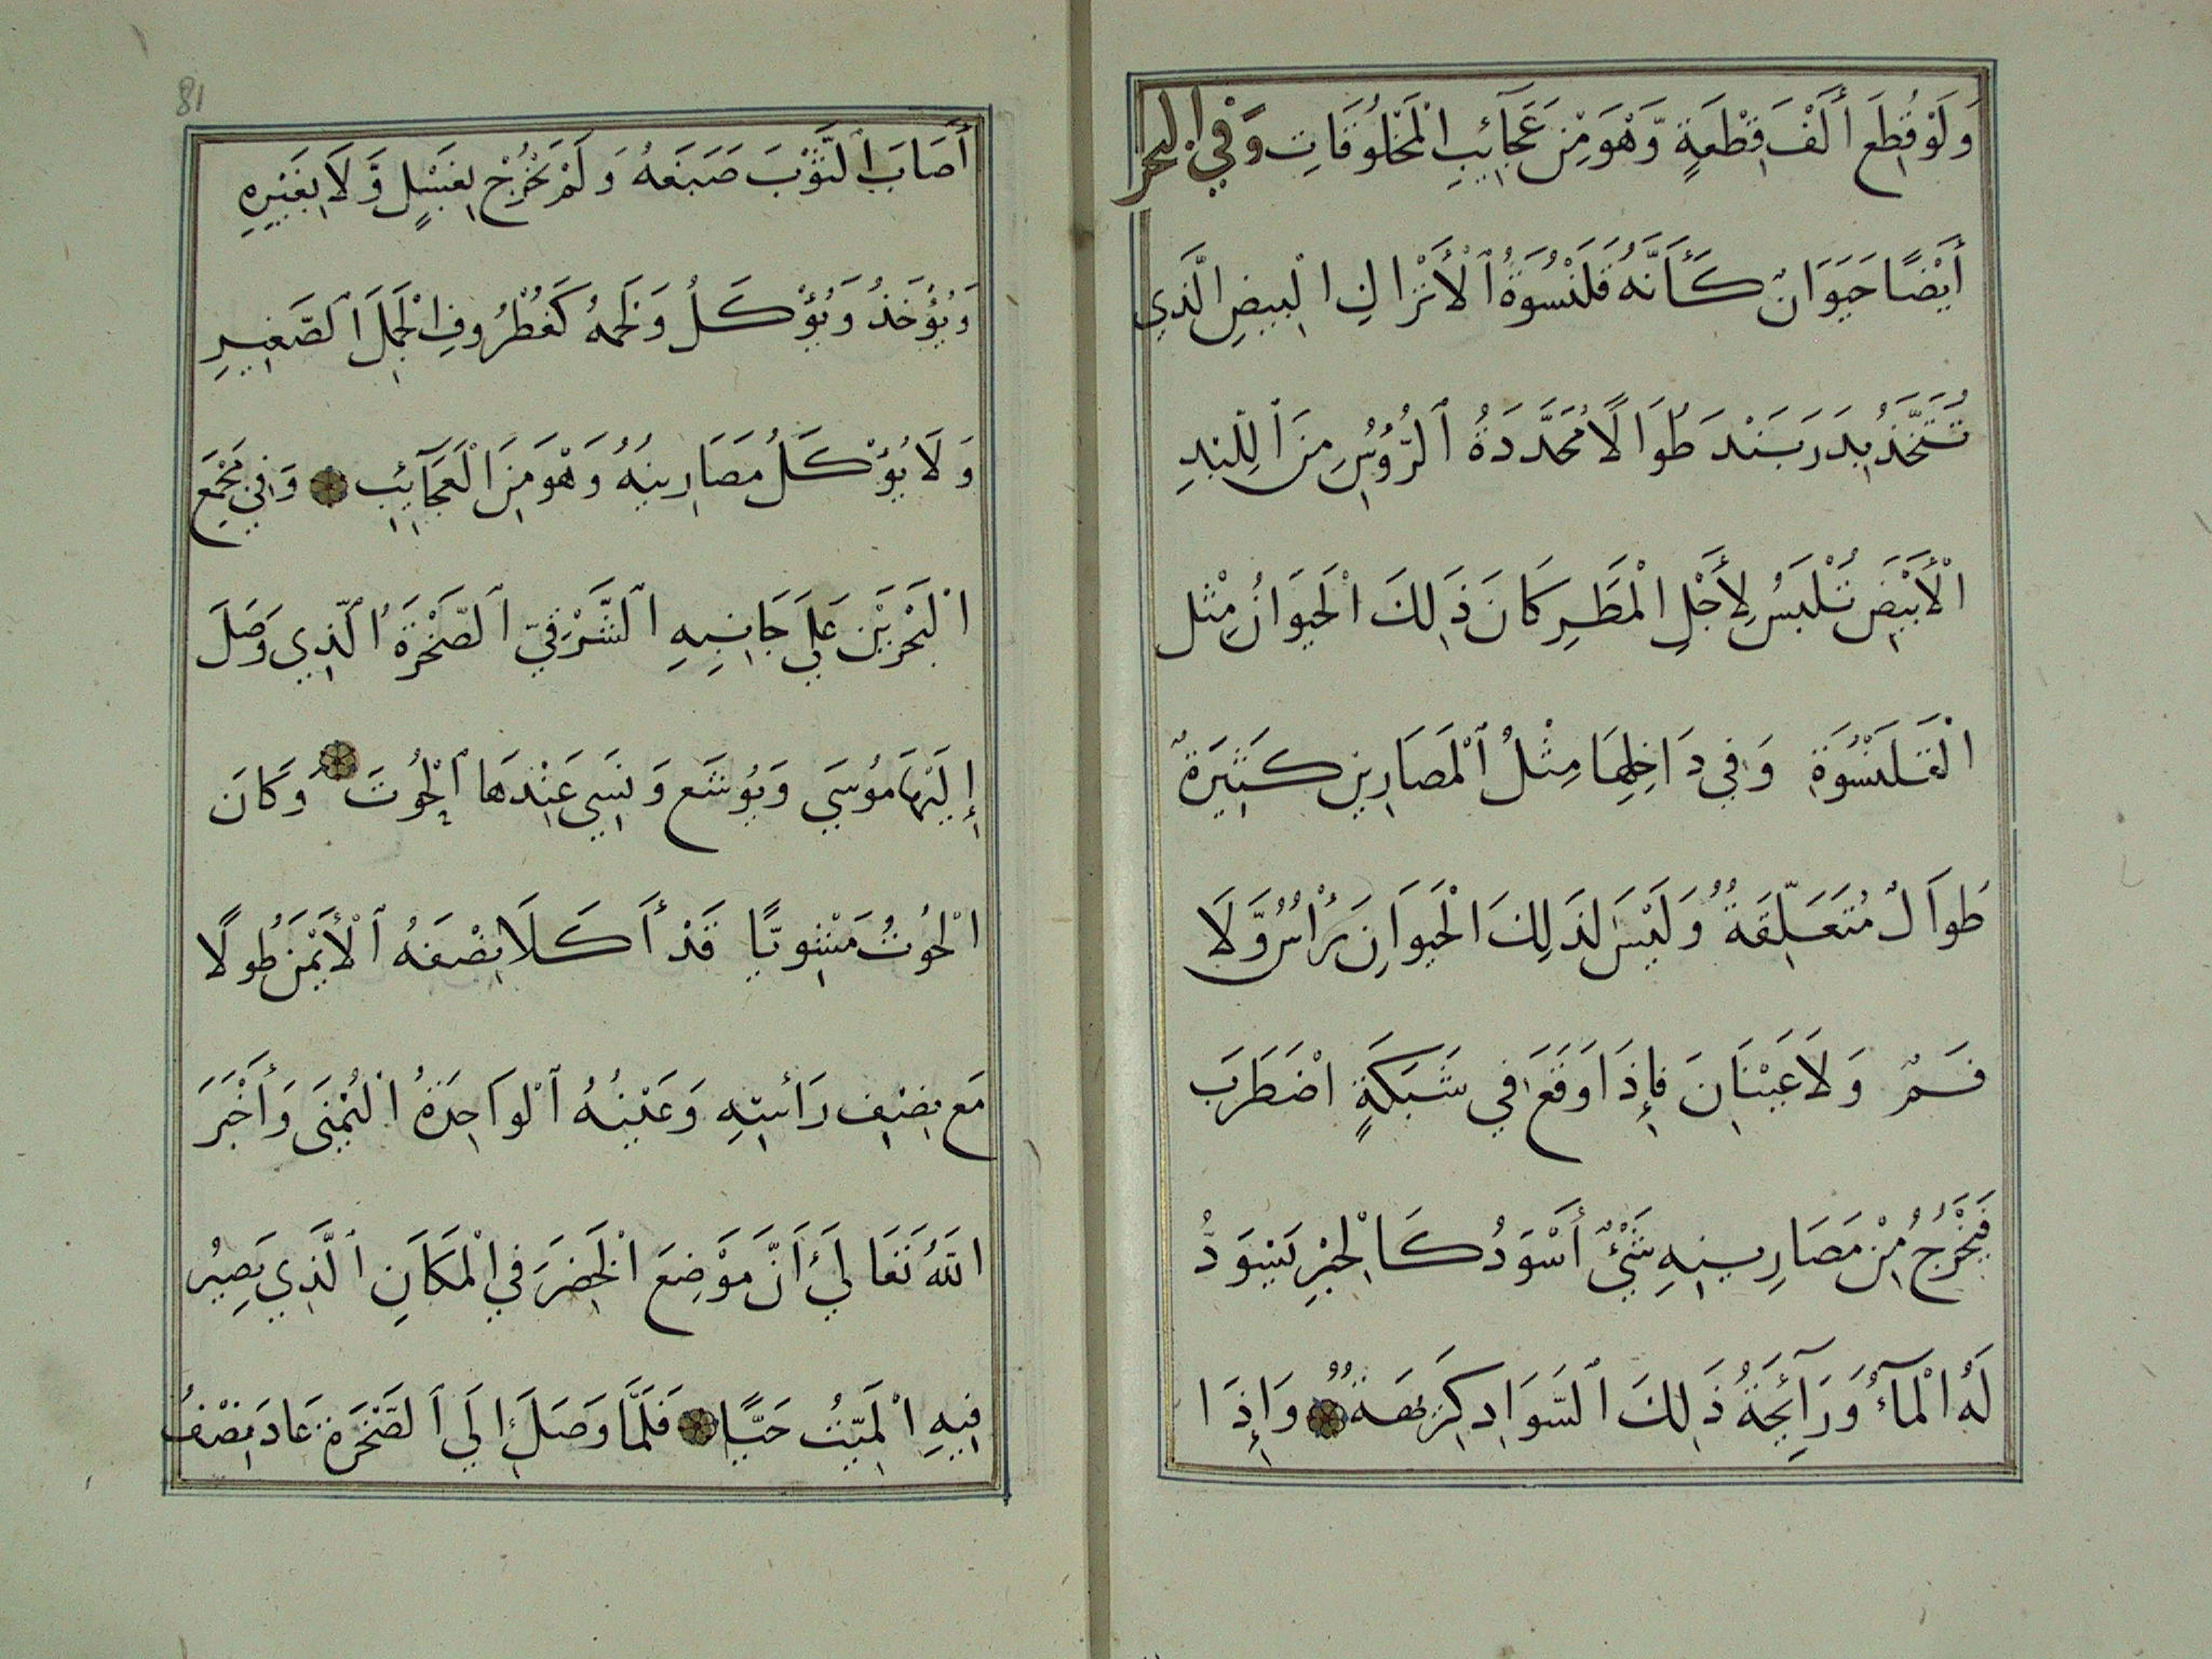 وَلَوْ قُطِعَ أَلْفَ قِطْعَةٍ وَّهْوَ مِنْ عَجَآئِبِ الْمَخْلُوقَاتِ وَفِي الْبحر
أَيْضًا حَيَوَانٌ كَأَنَّهُ قَلَنْسُوَةُ الْأَتْرَاكِ الْبِيضِ الَّذِي
تُتَّخَذُ بِدَرَبَنْدَ طُوَالًا مُحَّدَدَةُ الرُّؤُسِ مِنَ اللِّبْدِ
الْأَبْيَضِ تُلْبَسُ لِأَجْلِ الْمَطَرِ كَانَ ذَلِكَ الْحَيَوَانُ مِثْل
الْقَلَنْسُوَةِ وَفِي دَاخِلِهَا مِثْلُ الْمَصَارِينِ كَثِيرَةٌ
طُوَالٌ مُتَعَلِّقَةٌ وَلَيْسَ لِذَلِكَ الْحَيَوَانِ رَأْسٌ وَّلَا
فَمٌ وَلَا عَيْنَانِ فَإِذَا وَقَعَ فِي شَبَكَةٍ اضْطَرَبَ
فَيَخْرُجُ مِنْ مَصَارِينِهِ شَيْئٌ أَسْوَدُ كَالْحِبْرِ يَسْوَدُّ
لَهُ الْمَآءُ وَرَآئِحَةُ ذَلِكَ السَّوَادِ كَرِيهَةٌ وَإِذَا
81
أَصَابَ الثَّوْبَ صَبَغَهُ وَلَمْ يَخْرُجْ بِغَسْلٍ وَّلَا بِغَيْرِهِ
وَيُؤْخَذُ وَيُؤْكَلُ وَلَحْمُهُ كَغُظْرُوفِ الْجَمَلَ الصَّغِيرِ
وَلَا يُؤْكَلُ مَصَارِينُهُ وَهْوَ مِنَ الْعَجَآئِبِ وَفِي مَجْمَعِ
الْبَحْرَيْنِ عَلَي جَانِبِهِ الشَّرْقِيِّ الصَّخْرَةُ الَّذِي وَصَلَ
إِلَيْهَا مُوسَي وَيُوشَع وَنَسِي عَنْدَهَا الْحُوتَ وَكَانَ
الْحُوتُ مَشْوِيًّا قَدْ أَكَلَا نِصْفَهُ الْأَيْمَنَ طُولًا
مَع نِصْفِ رَأْسِهِ وَعَيْنُهُ الْوَاحِدَةُ الْيُمْنَى وَأَخْبَرَ
اللهُ تَعَالَي أَنَّ مَوْضِعَ الْخَضِرَ فِي الْمَكَانِ الَّذِي يَصِيرُ
فِيهِ الْمَيِّتُ حَيًّا فَلَمَّا وَصَلَ إِلَي الصَّخْرَةِ عَادَ نِصْفُ